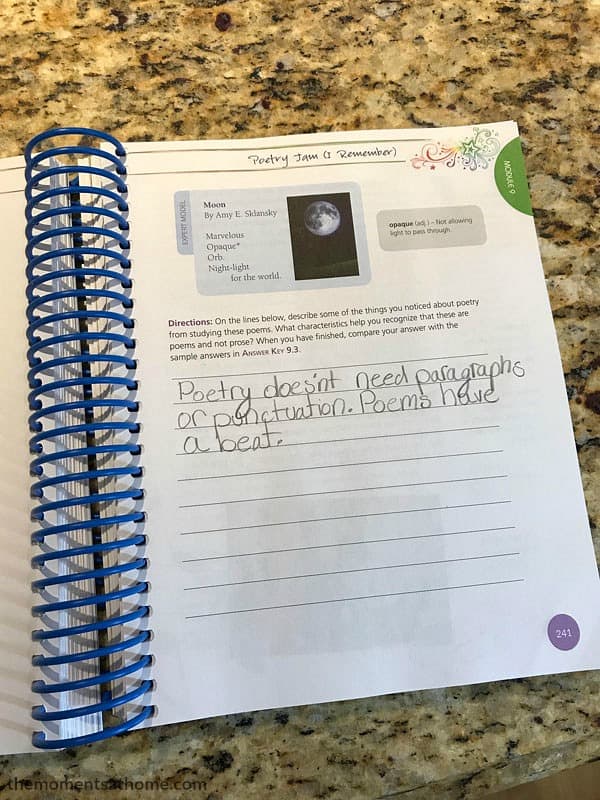 Poetry Jam (I Remember)
MODULE 9
EXPERT MODEL
Moon
By Amy E. Sklansky
Marvelous
Opaque*
Orb.
Night-light
for the world.
opaque (adj.) – Not allowing
light to pass through.
Directions: On the lines below, describe some of the things you noticed about poetry
from studying these poems. What characteristics help you recognize that these are
poems and not prose? When you have finished, compare your answer with the
sample answers in ANSWER KEY 9.3.
Poetry does'nt need paragraphs
or punctuation. Poems have
a beat.
241
themomentsathome.com